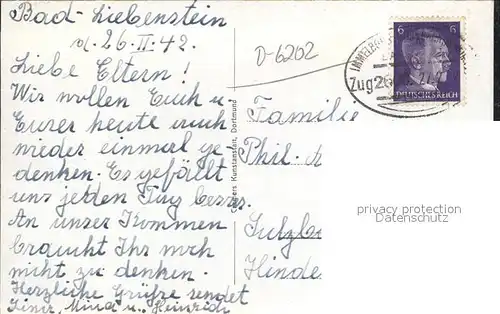 Bad-Liebenstein
d. 26. II. 42.
D-6202
Liebe Eltern!
Wir wollen Euch u.
Eurer heute auch
wieder einmal ge-
denken. Es gefällt
uns jeden Tag besser.
An unser Kommen
braucht Ihr noch
nicht zu denken.
Herzliche Grüße sendet
Mina u. Heinrich
Cramers Kunstanstalt, Dortmund
6 6
DEUTSCHES REICH
Zug 26
Familie
Phil.
Sulzb
Hinde
privacy protection
Datenschutz